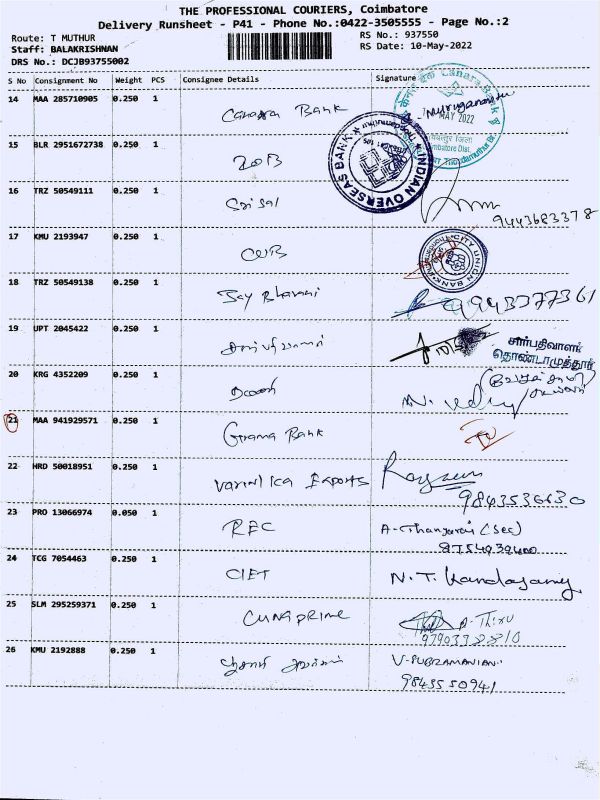 THE PROFESSIONAL COURIERS, Coimbatore
Delivery Runsheet - P41 - Phone No.:0422-3505555 - Page No.:2
Route: T MUTHUR
RS No.: 937550
Staff: BALAKRISHNAN
RS Date: 10-May-2022
DRS No.: DCJB93755002
S No Consignment No Weight PCS Consignee Details Signature
14 MAA 285710905 0.250 1 Canara Bank
MAY 2022
15 BLR 2951672738 0.250 1 IOB
INDIAN OVERSEAS BANK
16 TRZ 50549111 0.250 1 Sri sal
9443683378
17 KMU 2193947 0.250 1 CUB
CITY UNION BANK
18 TRZ 50549138 0.250 1 Jay Bharani 9943377361
19 UPT 2045422 0.250 1 சார்பதிவாளர்
சார்பதிவாளர்
தொண்டாமுத்தூர்
20 KRG 4352209 0.250 1
21 MAA 941929571 0.250 1 Grama Bank
22 HRD 50018951 0.250 1 Exports
9843536630
23 PRO 13066974 0.050 1 REC A-Thangaraj (Sec)
8754939400
24 TCG 7054463 0.250 1 CIET N.T. Kandasamy
25 SLM 295259371 0.250 1 CUNAPRIME A-Thiru
9790338810
26 KMU 2192888 0.250 1 V-SUBRAMANIAN
9843550941